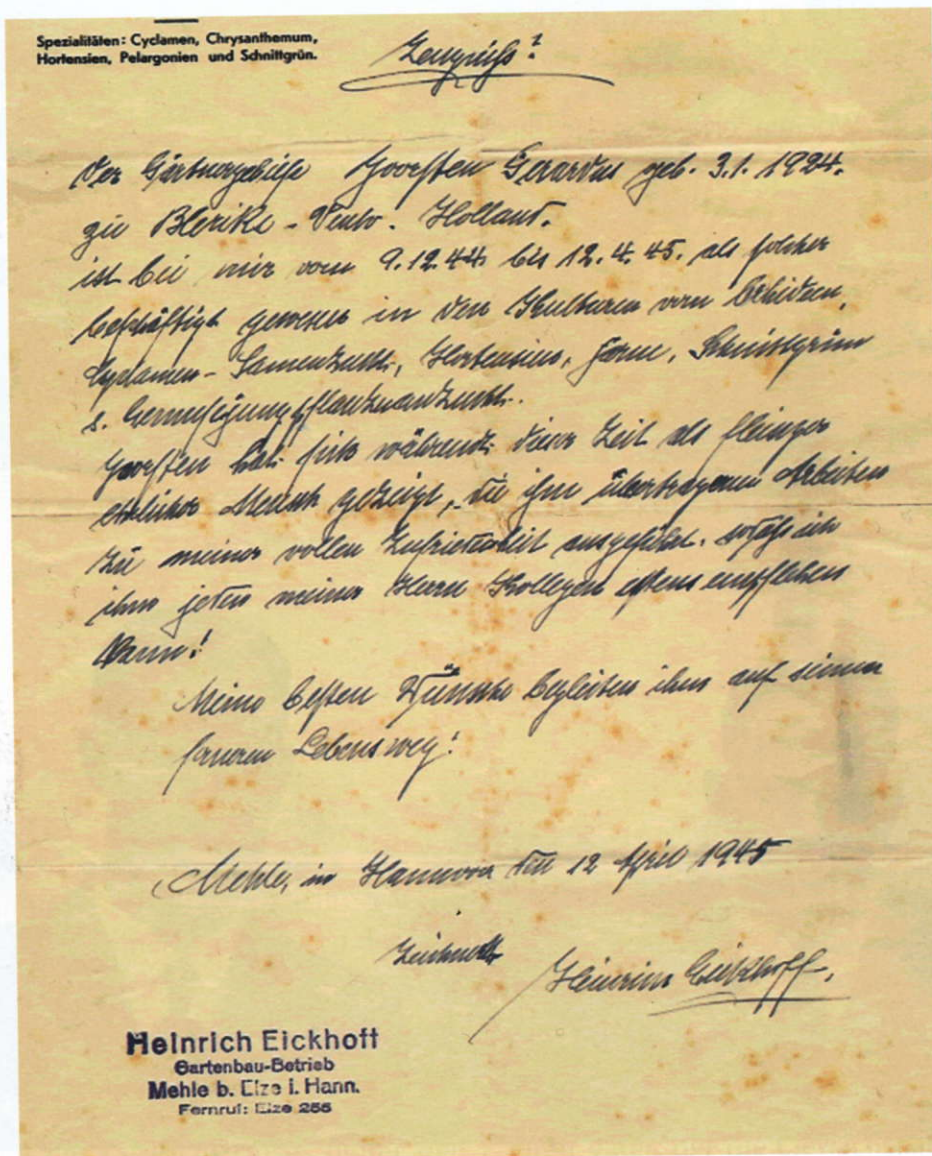 Spezialitäten: Cyclamen, Chrysanthemum,
Hortensien, Pelargonien und Schnittgrün.
Zeugniss!
Der Gärtnergehilfe Gerardus geb. 3.1.1924.
zu Blerike - Venlo. Holland.
ist bei mir vom 9.12.44. bis 12.4.45. als solcher
beschäftigt gewesen in den Kulturen von
Cyclamen - Samenzucht, Hortensien, Farne, Schnittgrün
s. Gemüsejungpflanzenanzucht.
hat sich während dieser Zeit als fleissiger
ehrlicher Mensch gezeigt, die ihm übertragenen Arbeiten
zu meiner vollen Zufriedenheit ausgeführt. sodass ich
ihn jeden meiner Herrn Kollegen bestens empfehlen
kann!
Meine besten Wünsche begleiten ihn auf seinen
ferneren Lebensweg!
Mehle, in Hannover den 12 April 1945
Heinrich Eickhoff.
Heinrich Eickhoff
Gartenbau-Betrieb
Mehle b. Elze i. Hann.
Fernruf: Elze 255